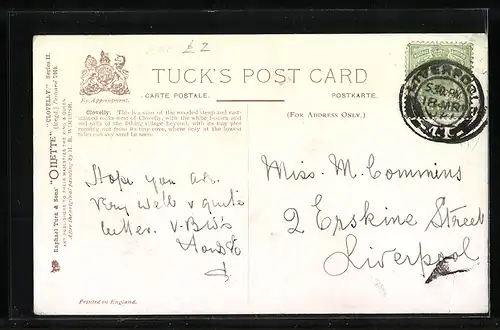 £2
TUCK'S POST CARD
By Appointment.
CARTE POSTALE.
POSTKARTE.
(FOR ADDRESS ONLY.)
Clovelly. This is a view of the wooded steep and
rocks west of Clovelly, with the white houses and
red roofs of the fishing village beyond, with its tiny pier
running out from its tiny cove, where only at the lowest
tides can any sand be seen.
Raphael Tuck & Sons' "OILETTE" "CLOVELLY." Series II.
ART PUBLISHERS TO THEIR MAJESTIES THE KING & QUEEN
After the original painting by H. B. WIMBUSH.
Hope you are
very well & quite
better.
Miss. M. Commins
2 Erskine Street
Liverpool
LIVERPOOL
5.30 PM
18 MR
Printed in England.